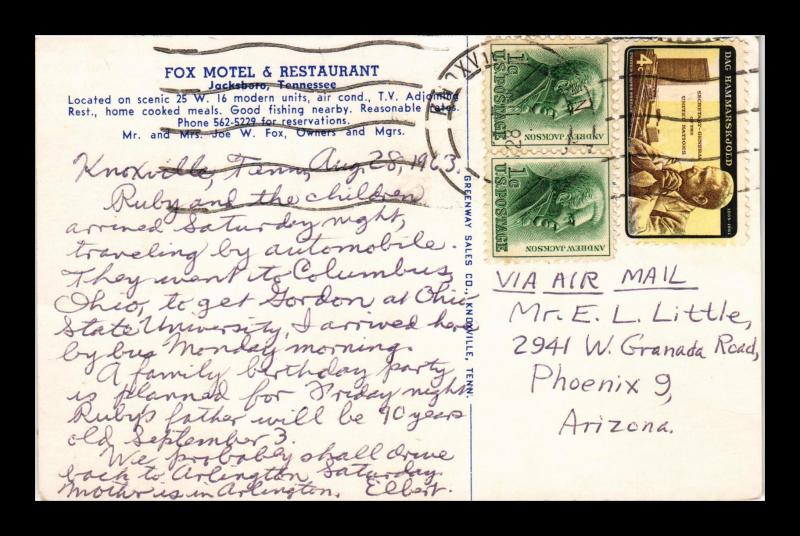 FOX MOTEL & RESTAURANT
Jacksboro, Tennessee
Located on scenic 25 W. 16 modern units, air cond., T.V. Adjoining
Rest., home cooked meals. Good fishing nearby. Reasonable rates.
Phone 562-5229 for reservations.
Mr. and Mrs. Joe W. Fox, Owners and Mgrs.
Knoxville, Tenn., Aug. 28, 1963.
Ruby and the children
arrived Saturday night,
traveling by automobile.
They went to Columbus,
Ohio, to get Gordon at Ohio
State University, I arrived here
by bus Monday morning.
A family birthday party
is planned for Friday night.
Ruby's father will be 90 years
old September 3.
We probably shall drive
back to Arlington Saturday.
Mother is in Arlington. Elbert.
GREENWAY SALES CO., KNOXVILLE, TENN.
1¢
U.S. POSTAGE
ANDREW JACKSON
1¢
U.S. POSTAGE
ANDREW JACKSON
28
4c
DAG HAMMARSKJOLD
SECRETARY-GENERAL
UNITED NATIONS
VIA AIR MAIL
Mr. E. L. Little,
2941 W. Granada Road,
Phoenix 9,
Arizona.